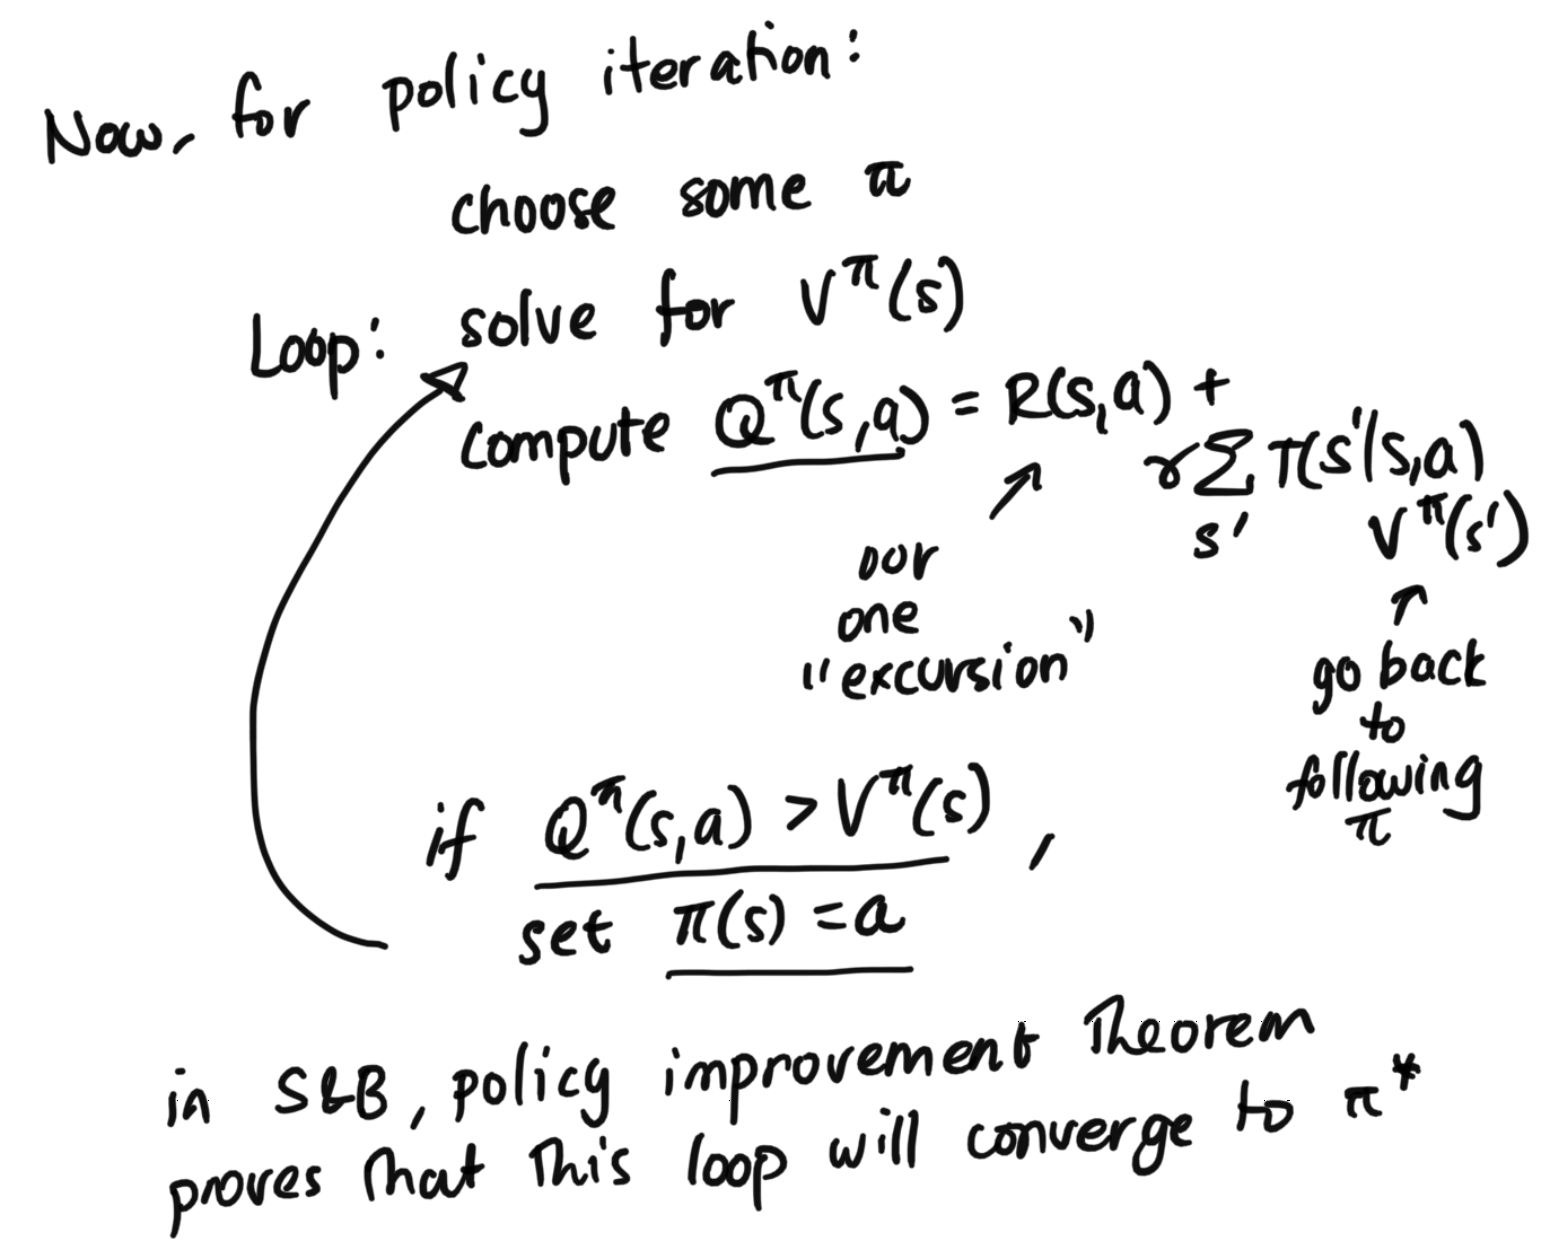 Now, for policy iteration:
choose some π
Loop: solve for V^π(s)
compute Q^π(s,a) = R(s,a) +
γ Σ T(s'|s,a)
s' V^π(s')
our
one
"excursion"
go back
to
following
π
if Q^π(s,a) > V^π(s) ,
set π(s) = a
in S&B, policy improvement Theorem
proves that this loop will converge to π*